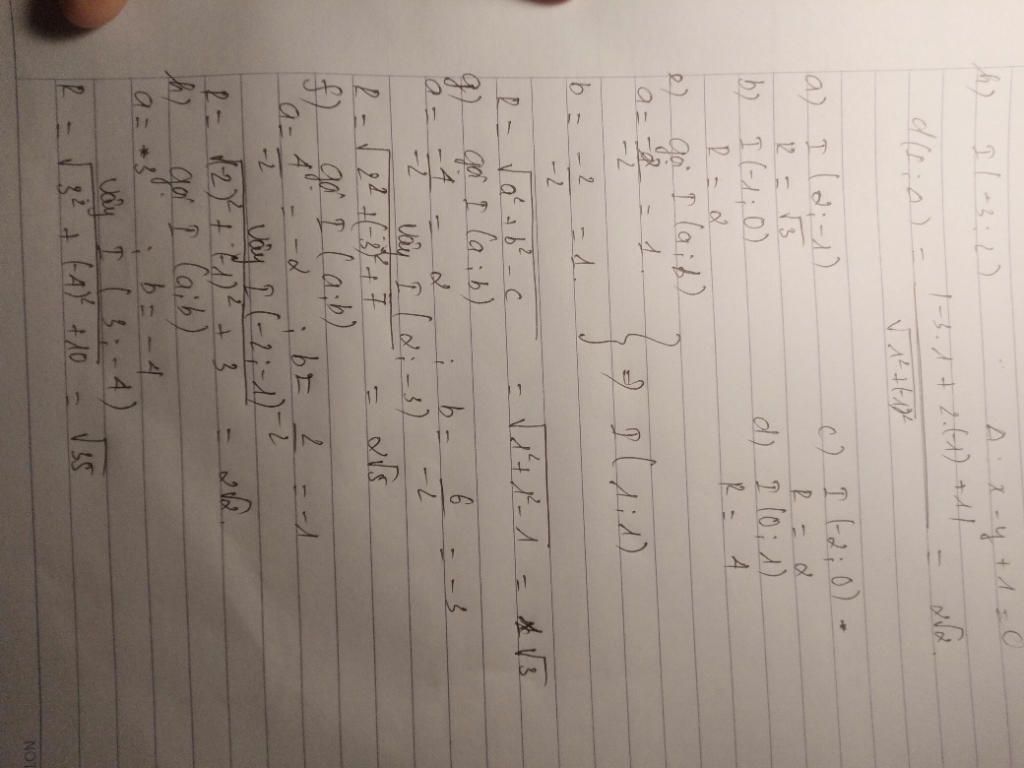 h) I(-3; 2) Δ: x - y + 1 = 0
d(I; Δ) = |-3.1 + 2.(-1) + 1| / √1²+(-1)² = 2√2
a) I(2; -1) c) I(-2; 0)
R = √3 R = 2
b) I(-1; 0) d) I(0; 1)
R = 2 R = 4
e) gọi I(a; b)
a = -2/-2 = 1
b = -2/-2 = 1 } => I(1; 1)
R = √a² + b² - c = √1² + 1² - 1 = √3
g) gọi I(a; b)
a = -4/-2 = 2 ; b = 6/-2 = -3
Vậy I(2; -3)
R = √2² + (-3)² + 7 = 2√5
f) gọi I(a; b)
a = 4/-2 = -2 ; b = 2/-2 = -1
Vậy I(-2; -1)
R = √(-2)² + (-1)² + 3 = 2√2
h) gọi I(a; b)
a = 3 ; b = -4
Vậy I(3; -4)
R = √3² + (-4)² + 10 = √35